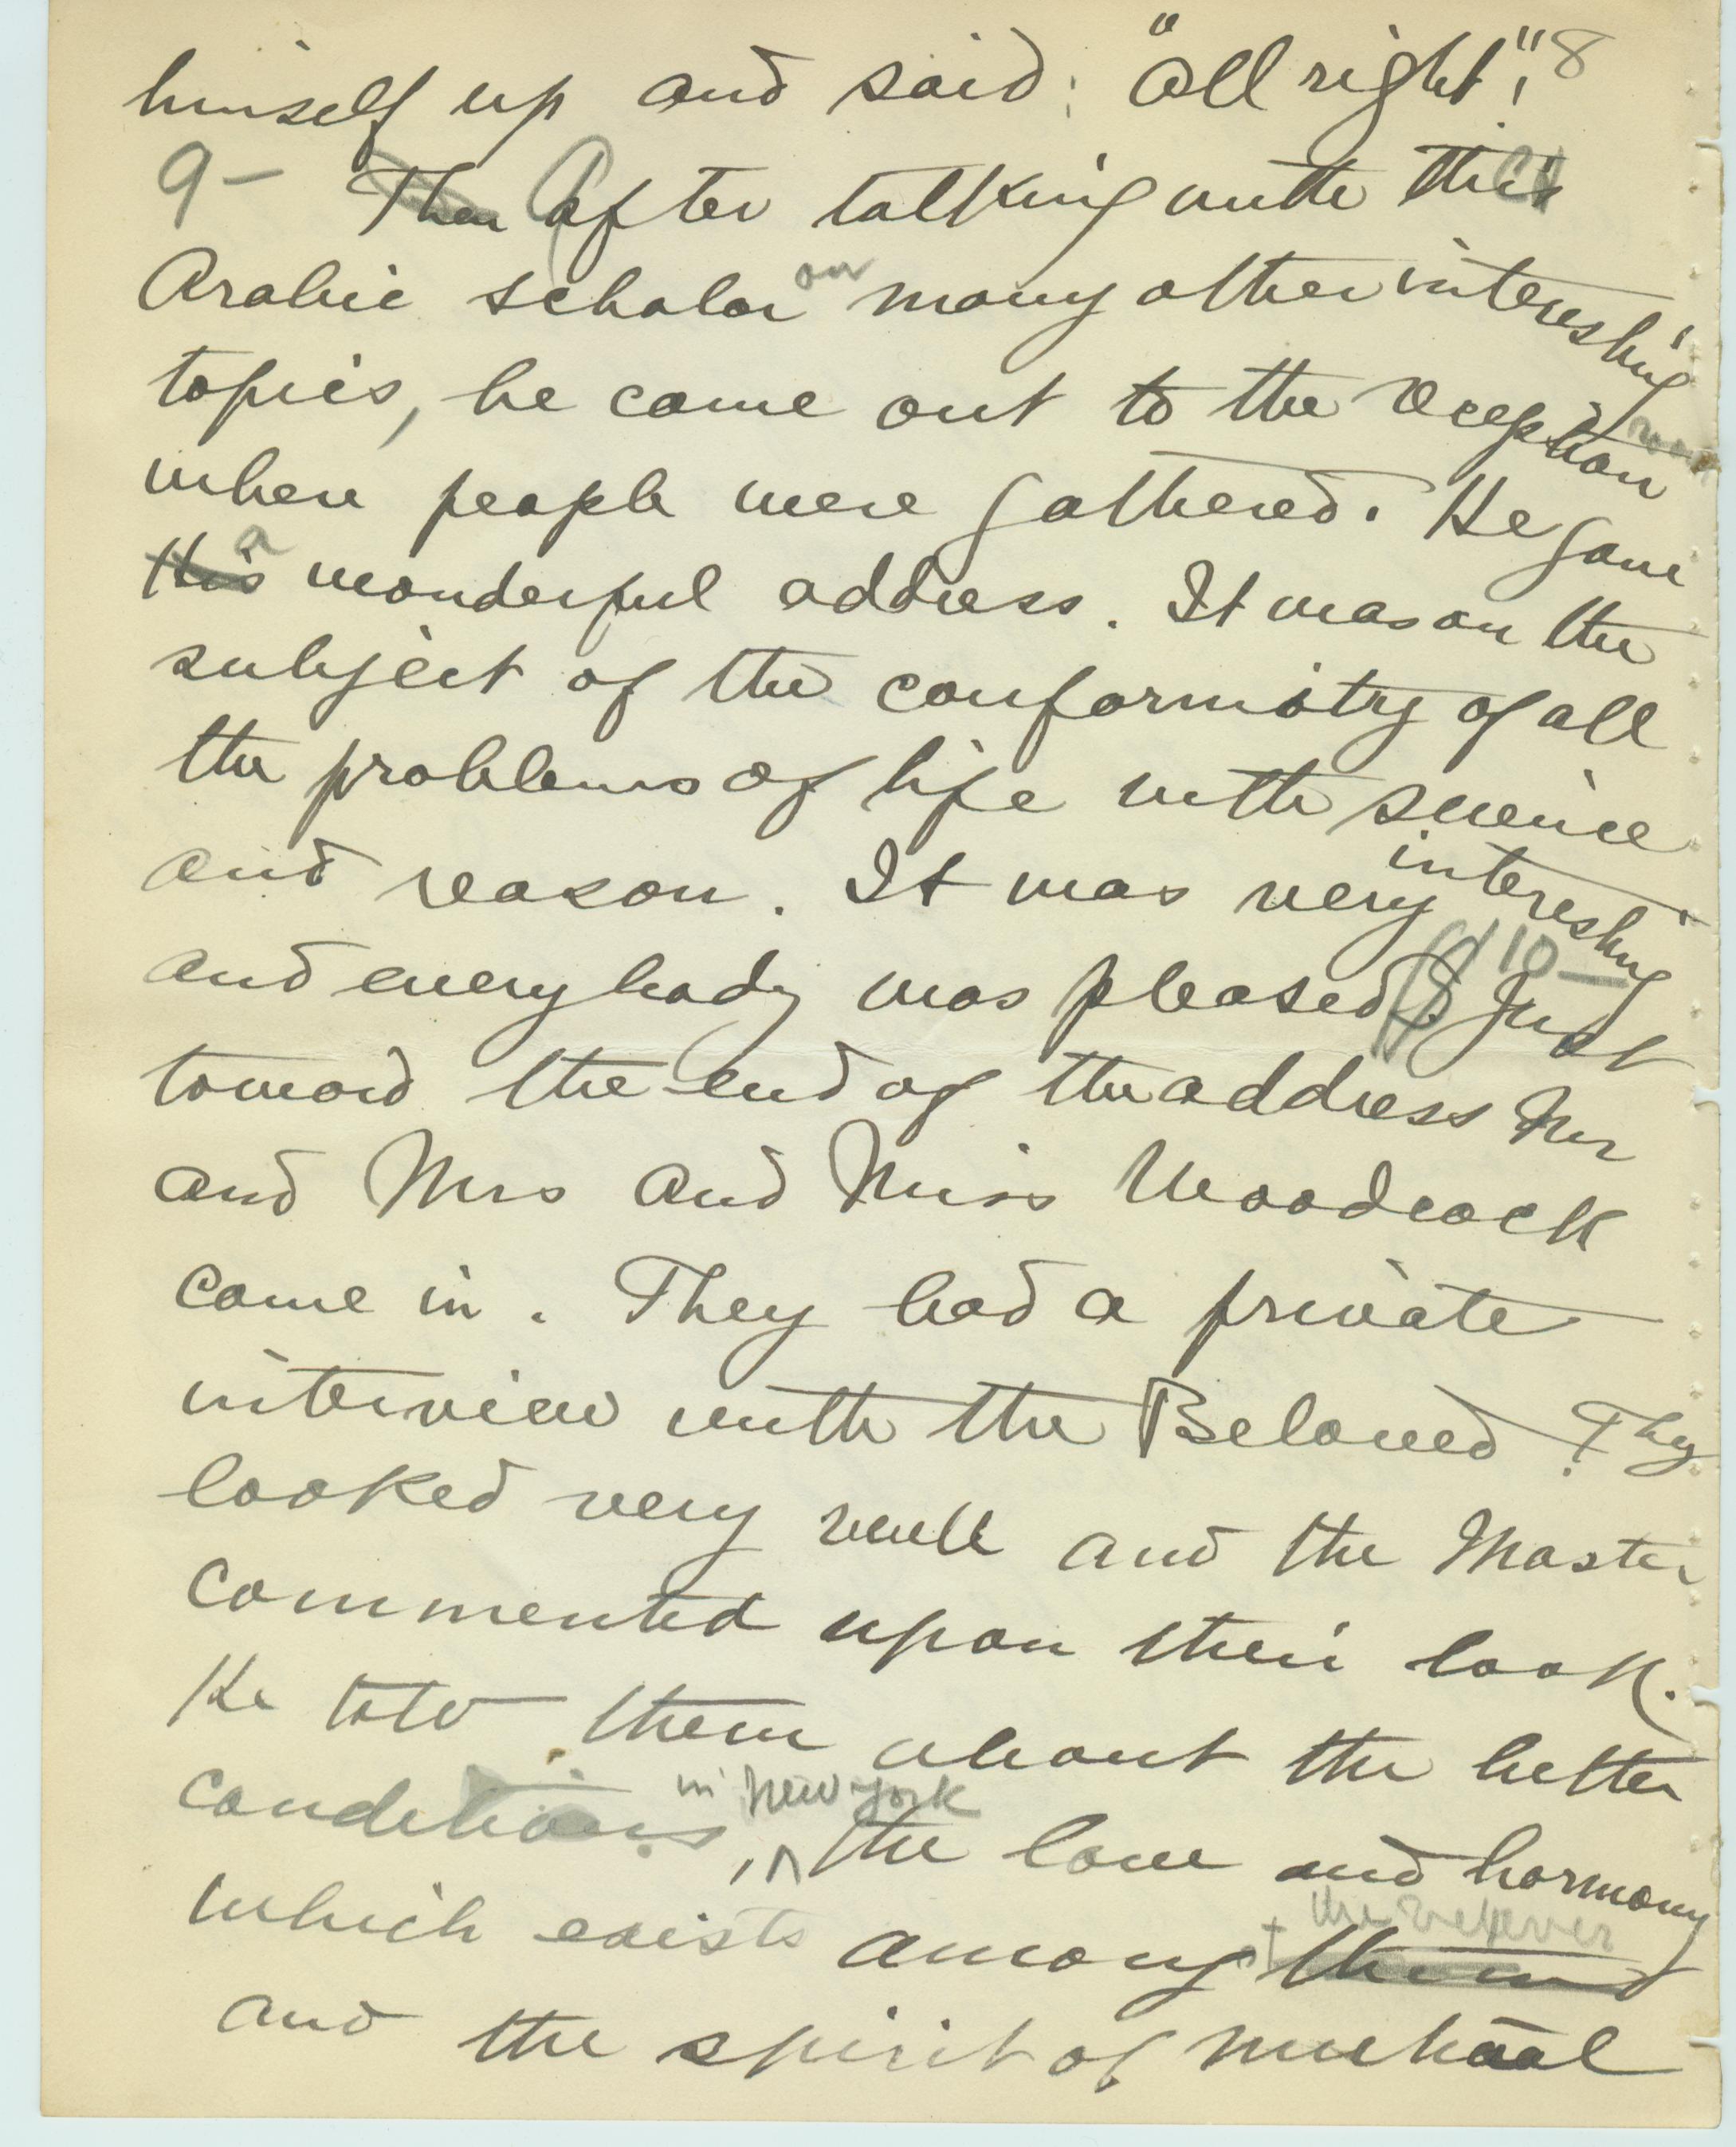 himself up and said: "All right"! 8
9 - Then After talking with this
Arabic scholar on many other interesting
topics, he came out to the reception room
where people were gathered. He gave
this a wonderful address. It was on the
subject of the conformity of all
the problems of life with science
and reason. It was very interesting
and everybody was pleased. 10 - Just
toward the end of the address Mr
and Mrs and Miss Woodcock
came in. They had a private
interview with the Beloved. They
looked very well and the Master
commented upon their look.
He told them about the better
conditions in New York, the love and harmony
which exists among them the believers
and the spirit of mutual